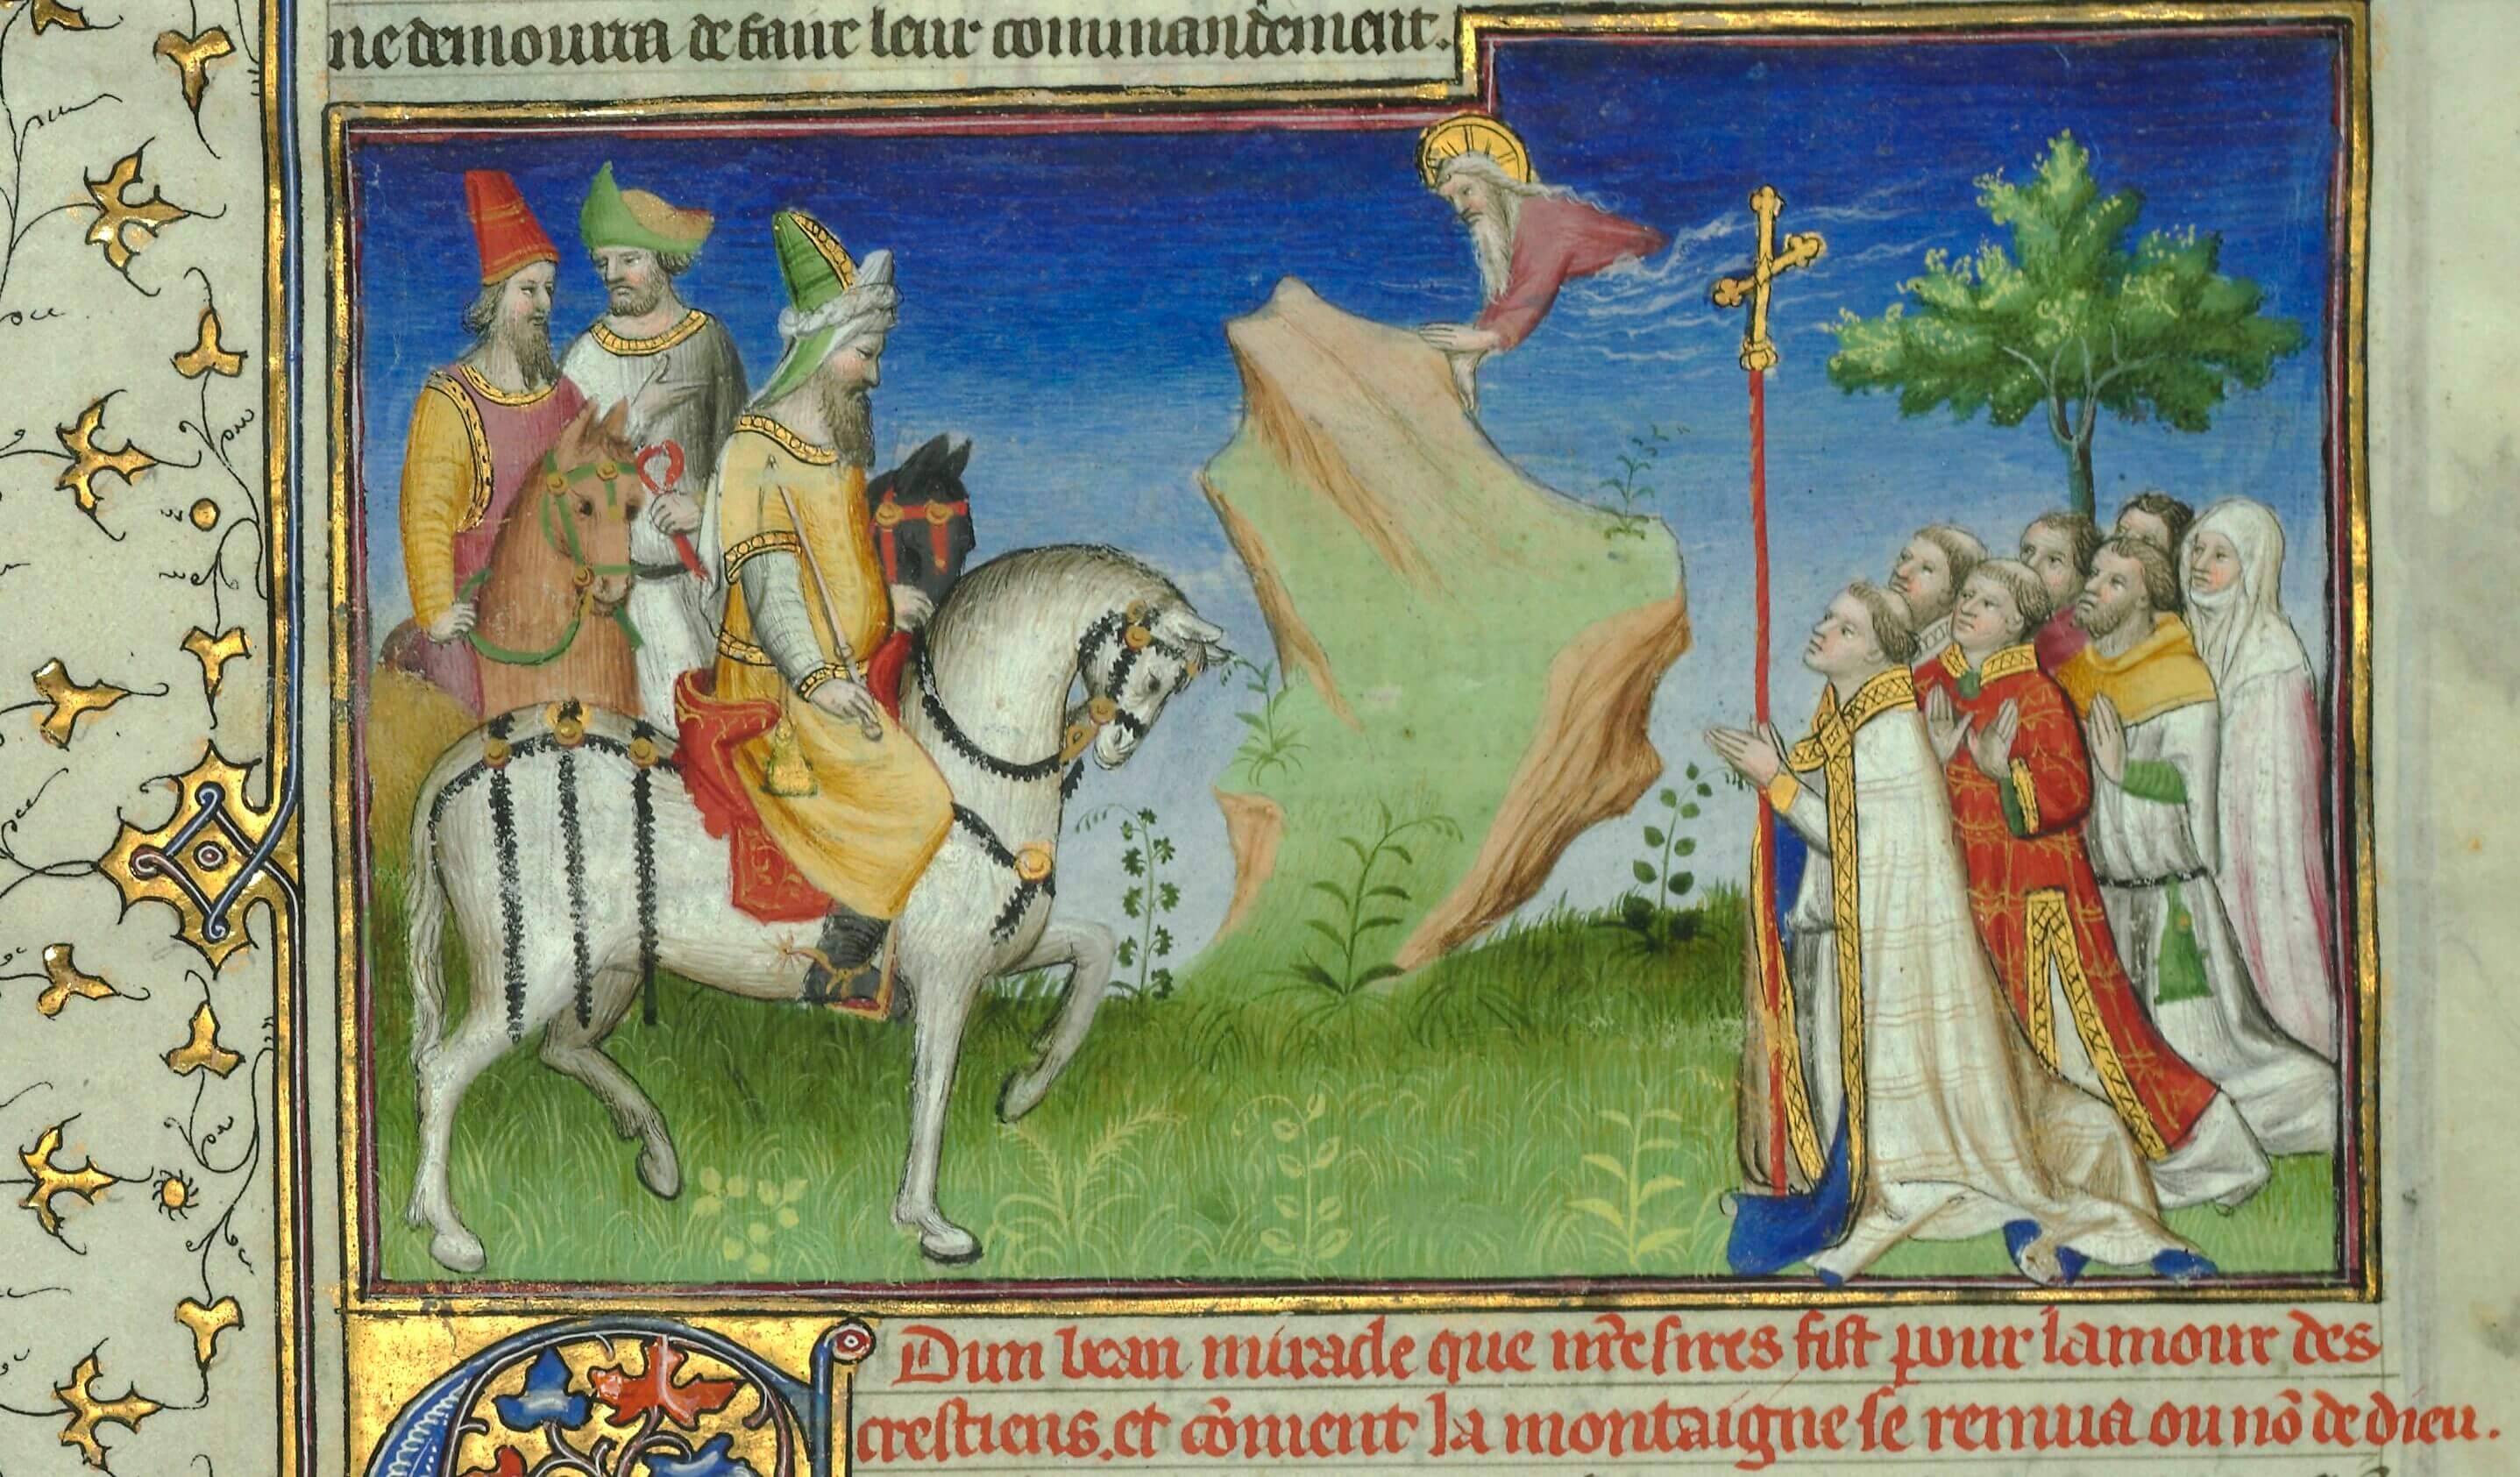 ne demourra de faire leur commandement.
Dun beau miracle que nr̃e sires fist pour lamour des
crestiens. et cõment la montaigne se remua ou nõ de dieu.